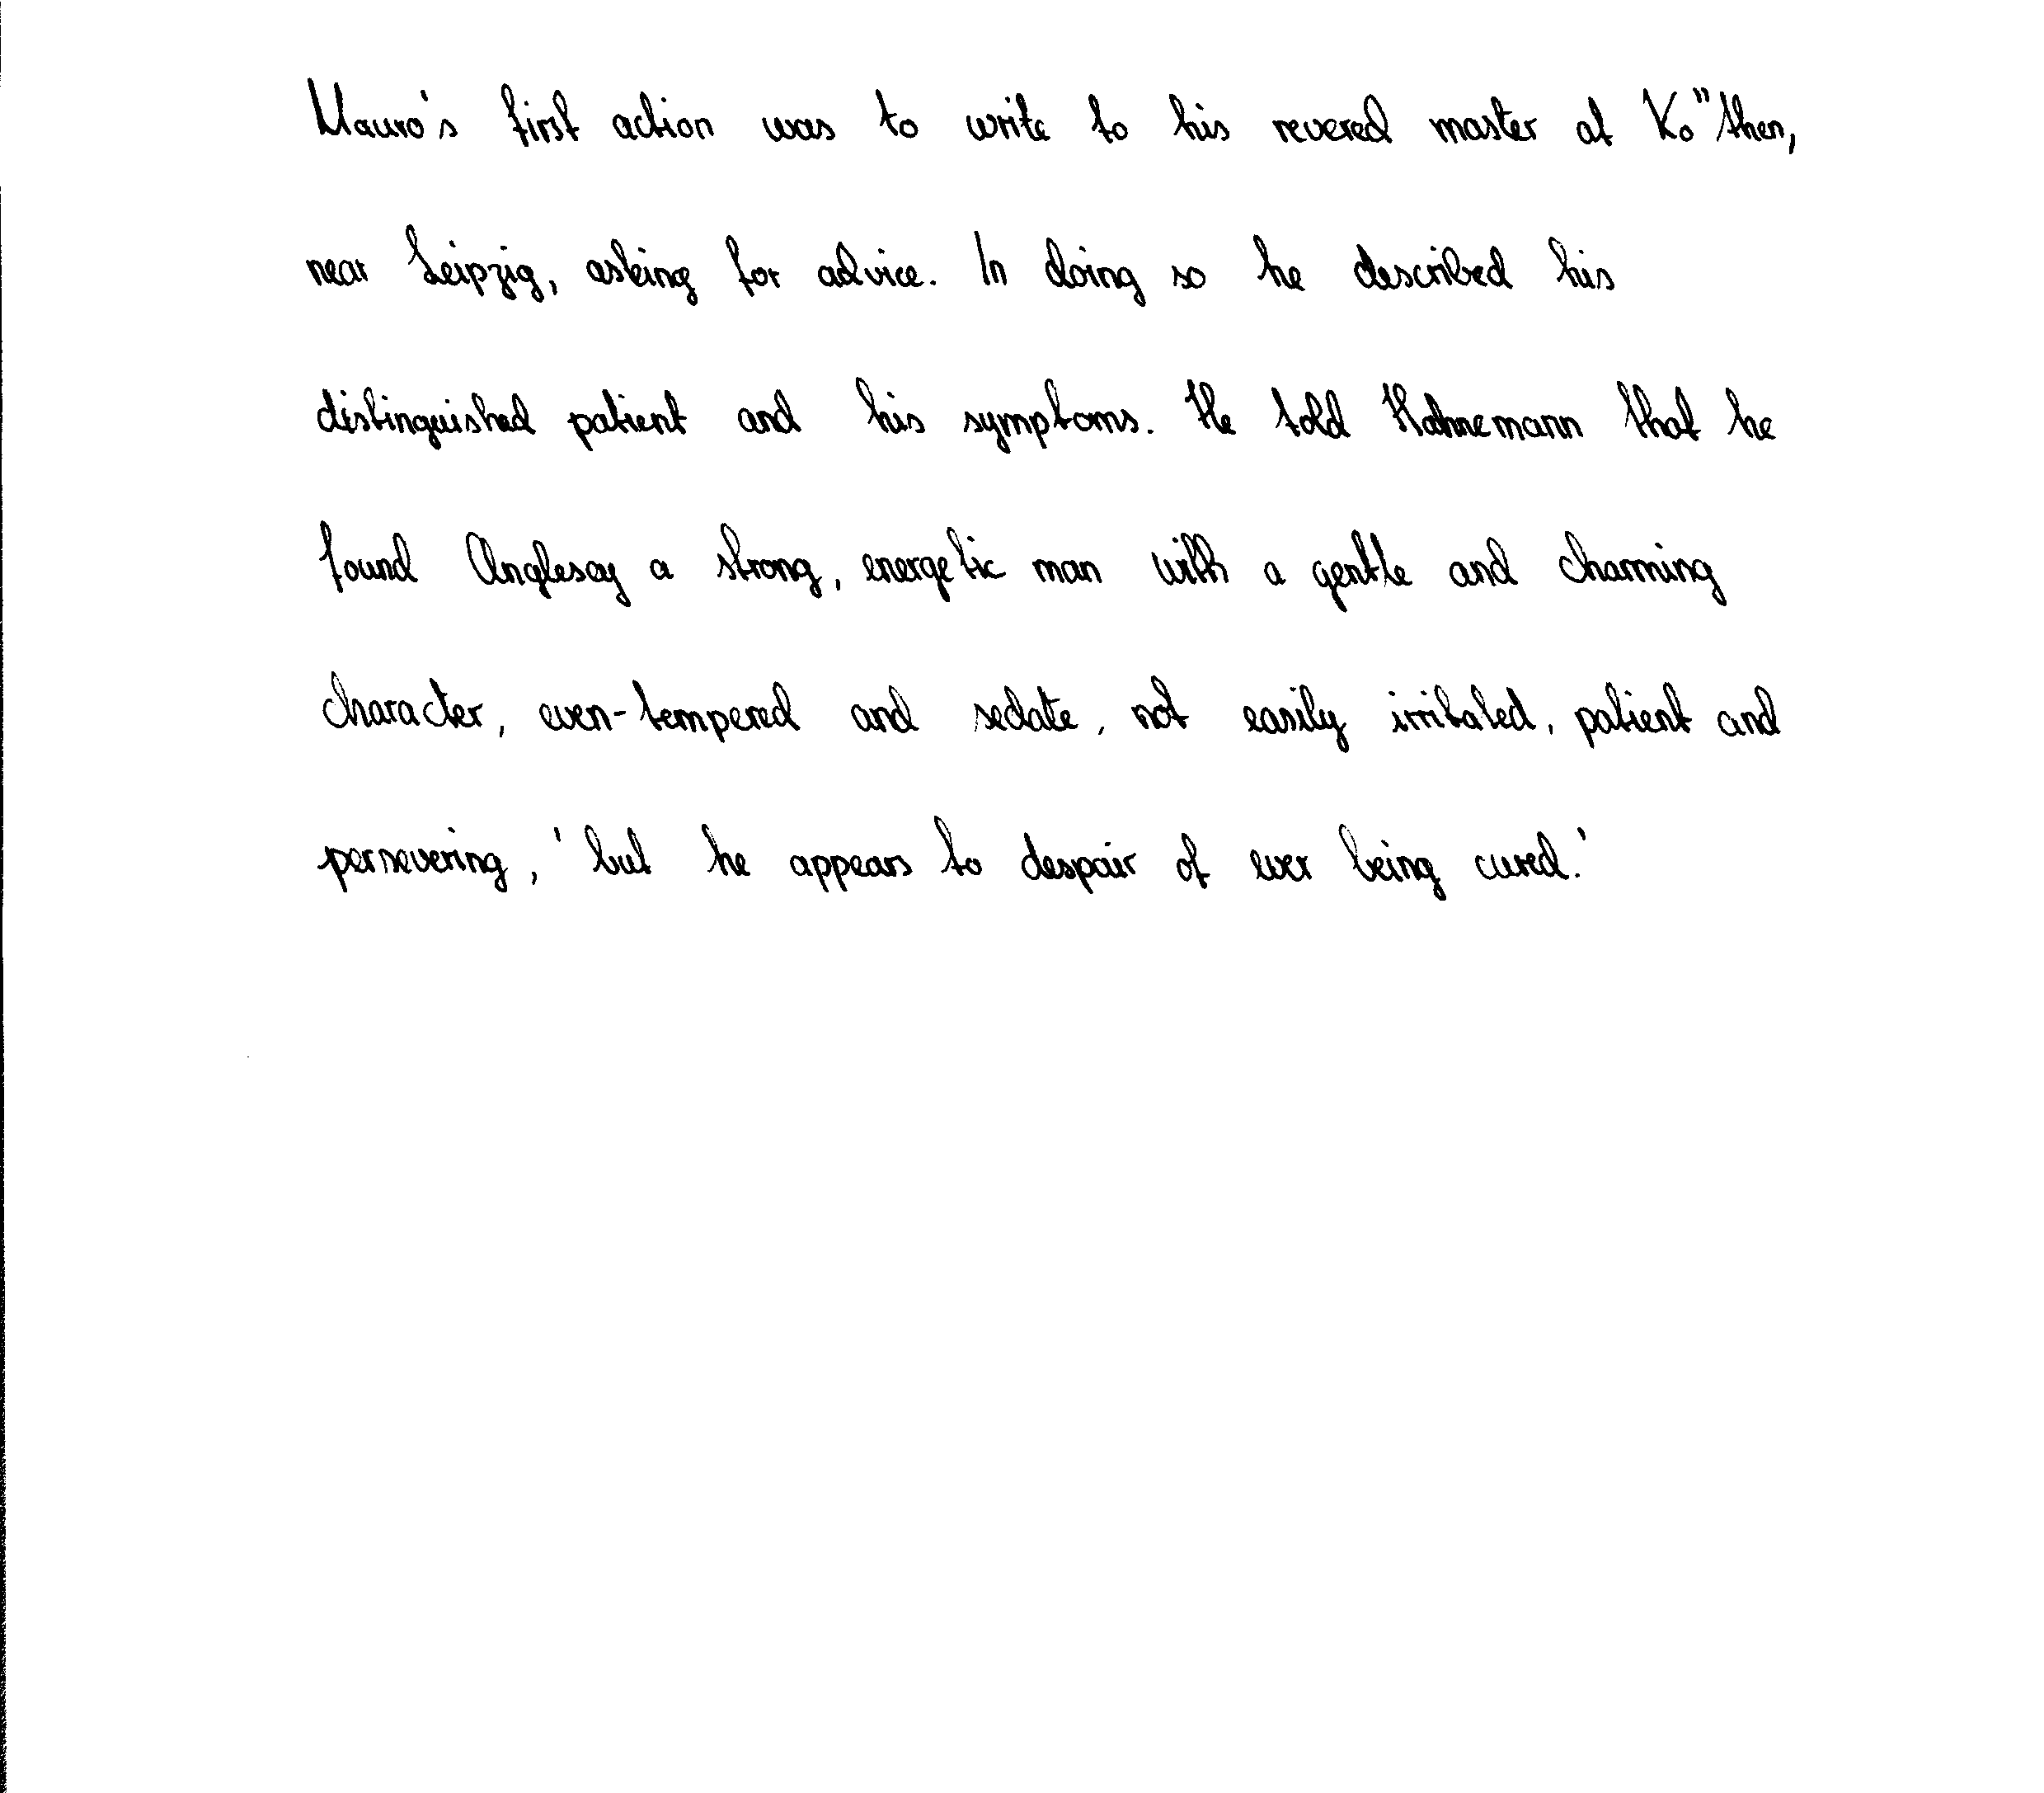 Mauro's first action was to write to his revered master at Ko"then,
near Leipzig, asking for advice. In doing so he described his
distinguished patient and his symptoms. He told Hahnemann that he
found Anglesey a strong, energetic man with a gentle and charming
character, even-tempered and sedate, not easily irritated, patient and
persevering, 'but he appears to despair of ever being cured.'